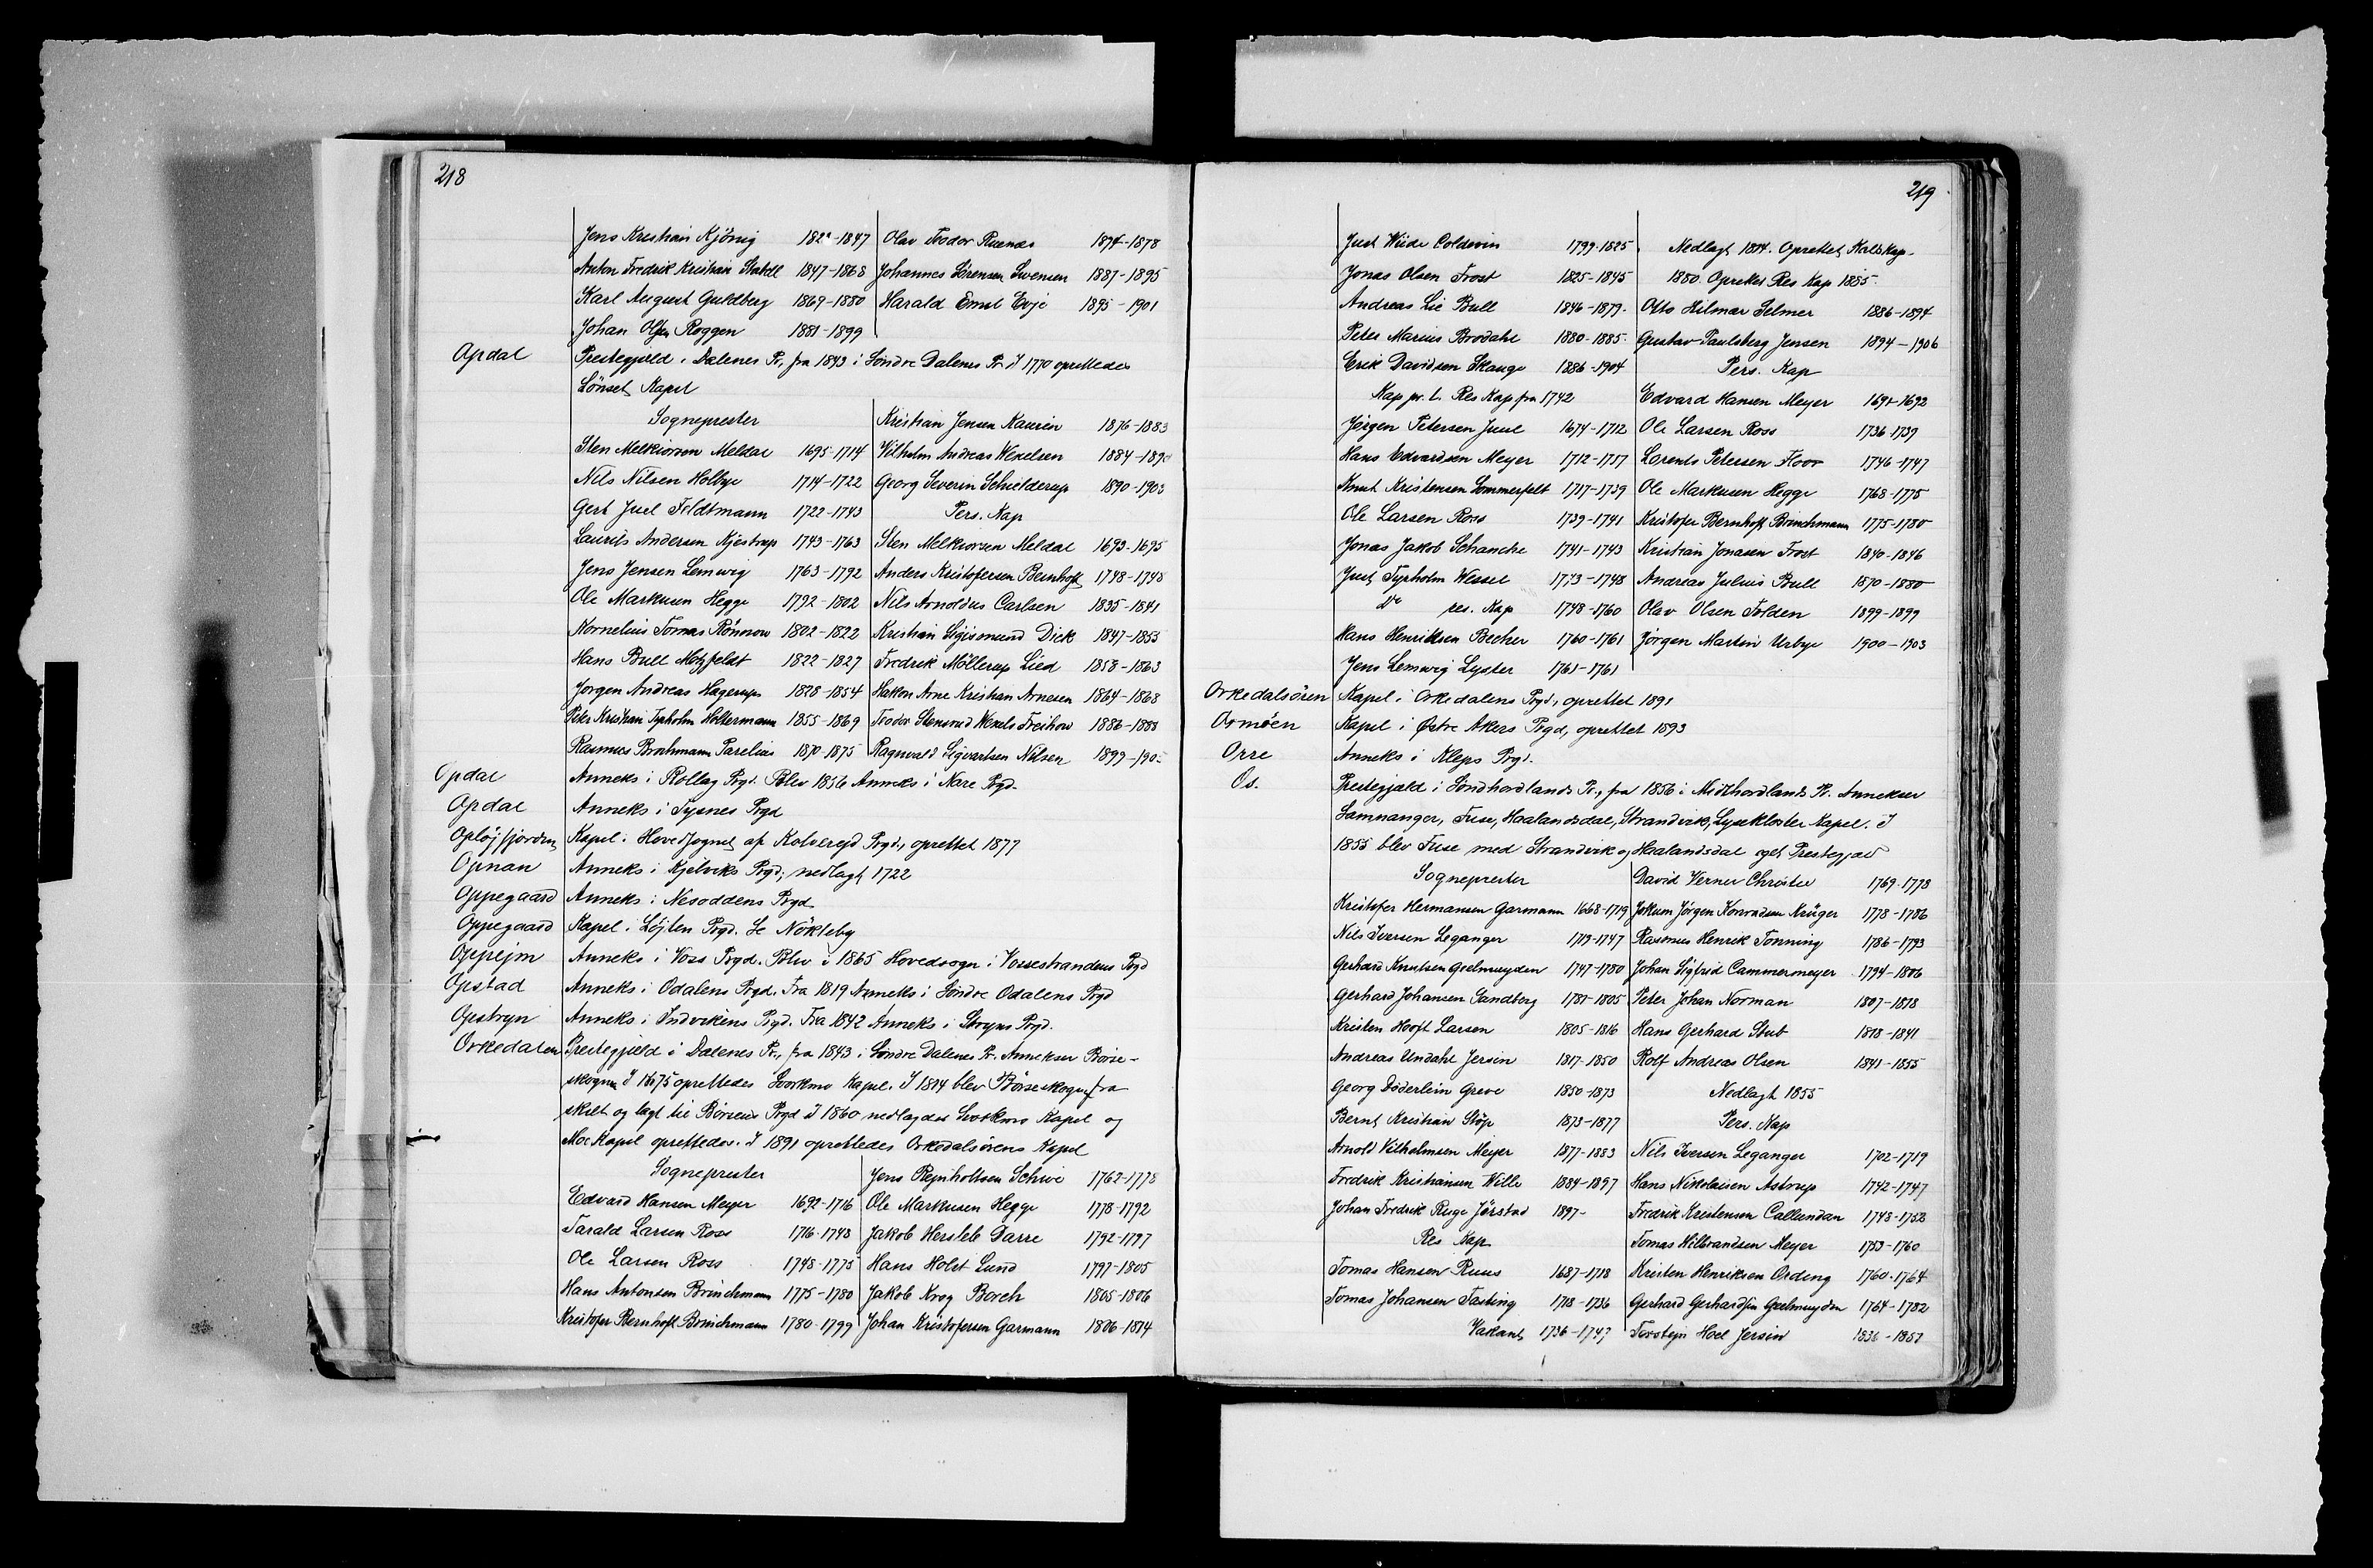 218
Jens Kristian Kjönig 182 -1847 Olav Teodor Ruenæs 1874-1878
Anton Fredrik Kristian Stabell 1847-1868 Johannes Sörensen Svensen 1887-1895
Karl August Guldberg 1869-1880 Harald Ernst Evje 1895-1901
Johan Olsen Roggen 1881-1899
Opdal Prestegjeld i Dalenes Pr., fra 1843 i Söndre Dalenes Pr. I 1770 oprettedes
Lönset Kapel
Sogneprester Kristian Jensen Kaurin 1876-1883
Sten Melkiorsen Meldal 1695-1714 Vilhelm Andreas Wexelsen 1884-1890
Nils Nilsen Holbye 1714-1722 Georg Severin Schielderup 1890-1903
Gert Juel Feldtmann 1722-1743 Pers. Kap
Laurits Andersen Kjestrup 1743-1763 Sten Melkiorsen Meldal 1693-1695
Jens Jensen Lemwig 1763-1792 Anders Kristofersen Bernhoft 1748-1748
Ole Markusen Hegge 1792-1802 Nils Arnoldus Carlsen 1835-1841
Kornelius Tomas Rönnow 1802-1822 Kristian Sigismund Dick 1847-1855
Hans Bull Motzfeldt 1822-1827 Fredrik Möllerup Lied 1858-1863
Jörgen Andreas Hagerup 1828-1854 Hakon Arne Kristian Arnesen 1864-1868
Peter Kristian Tyrholm Holtermann 1855-1869 Teodor Stensrud Wexels Freihow 1886-1888
Rasmus Brochmann Parelius 1870-1875 Ragnvald Sigvartsen Nilsen 1899-190
Opdal Anneks i Rollag Pgd. Blev 1856 Anneks i Nore Pgd.
Opdal Anneks i Tysnes Pgd
Opløjfjorden Kapel i Hovedsognet af Kolvereid Pgd, oprettet 1877
Opnan Anneks i Kjelviks Pgd, nedlagt 1722
Oppegaard Anneks i Nesoddens Pgd
Oppegaard Kapel i Löjten Pgd. Se Nökleby
Oppejm Anneks i Voss Pgd. Blev i 1865 Hovedsogn i Vossestrandens Pgd
Opstad Anneks i Odalens Pgd. Fra 1819 Anneks i Söndre Odalens Pgd
Opstryn Anneks i Indvikens Pgd. Fra 1842 Anneks i Stryns Pgd.
Orkedalen Prestegjeld i Dalenes Pr., fra 1843 i Söndre Dalenes Pr. Annekser Börse-
skogn. I 1675 oprettedes Svorkmo Kapel. I 1814 blev Börseskogn fra
skilt og lagt til Börsens Pgd I 1860 nedlagdes Svorkmo Kapel og
Moe Kapel oprettedes. I 1891 oprettedes Orkedalsörens Kapel
Sogneprester Jens Rejnholtsen Schive 1762-1778
Edvard Hansen Meyer 1692-1716 Ole Markusen Hegge 1778-1792
Tarald Larsen Ross 1716-1748 Jakob Hersleb Darre 1792-1797
Ole Larsen Ross 1748-1775 Hans Holst Lund 1797-1805
Hans Antonsen Brinchmann 1775-1780 Jakob Krog Borch 1805-1806
Kristofer Bernhoft Brinchmann 1780-1799 Johan Kristofersen Garmann 1806-1814
219
Just Wiide Coldevin 1799-1825 Nedlagt 1814. Oprettet Kaldskap.
Jonas Olsen Frost 1825-1845 1880. Oprettet Res Kap 1885.
Andreas Lie Bull 1846-1879. Otto Hilmar Selmer 1886-1894
Peter Marius Brodahl 1880-1885. Gustav Paulsberg Jensen 1894-1906
Erik Davidsen Skauge 1886-1904 Pers. Kap
Kap pr. l. Res Kap fra 1742 Edvard Hansen Meyer 1691-1692
Jörgen Petersen Juul 1674-1712 Ole Larsen Ross 1736-1739
Hans Edvardsen Meyer 1712-1717 Lorents Petersen Floor 1746-1747
Knut Kristensen Sommerfelt 1717-1739 Ole Markusen Hegge 1768-1775
Ole Larsen Ross 1739-1741 Kristofer Bernhoft Brinchmann 1775-1780
Jonas Jakob Schanche 1741-1743 Kristian Jonasen Frost 1840-1846
Just Tyrholm Wessel 1743-1748 Andreas Julius Bull 1870-1880
Do res. Kap 1748-1760 Olav Olsen Folden 1899-1899
Hans Henriksen Becher 1760-1761 Jörgen Martin Urbye 1900-1903
Jens Lemwig Lyster 1761-1761
Orkedalsören Kapel i Orkedalens Pgd, oprettet 1891
Ormöen Kapel i Østre Akers Pgd, oprettet 1893
Orre Anneks i Kleps Pgd.
Os. Prestegjæld i Söndhordlands Pr., fra 1856 i Midthordlands Pr. Annekser
Samnanger, Fuse, Haalandsdal, Strandvik, Lysekloster Kapel. I
1855 blev Fuse med Strandvik og Haalandsdal eget Prestegjæld
Sogneprester David Verner Christie 1769-1778
Kristofer Hermansen Garmann 1668-1719 Jokum Jörgen Konradsen Krüger 1778-1786
Nils Iversen Leganger 1719-1747 Rasmus Henrik Tonning 1786-1793
Gerhard Knutsen Geelmuyden 1747-1780 Johan Sigfrid Cammermeyer 1794-1806
Gerhard Johansen Sandberg 1781-1805 Peter Johan Norman 1807-1818
Kristen Hooft Larsen 1805-1816 Hans Gerhard Stub 1818-1841
Andreas Undahl Jersin 1817-1850 Rolf Andreas Olsen 1841-1855
Georg Döderlein Greve 1850-1873 Nedlagt 1855
Bernt Kristian Stöp 1873-1877 Pers. Kap
Arnold Vilhelmsen Meyer 1877-1883 Nils Iversen Leganger 1702-1719
Fredrik Kristiansen Wille 1884-1897 Hans Nikolaisen Astrup 1742-1747
Johan Fredrik Ruge Jörstad 1897- Fredrik Kristensen Callundan 1748-1752
Res Kap Tomas Wilbrandsen Meyer 1753-1760
Tomas Hansen Ruus 1687-1718 Kristen Henriksen Ording 1760-1764
Tomas Johansen Tasting 1718-1736 Gerhard Gerhardsen Geelmuyden 1764-1782
Vakant 1736-1747 Torstejn Hoel Jersin 1836-1857